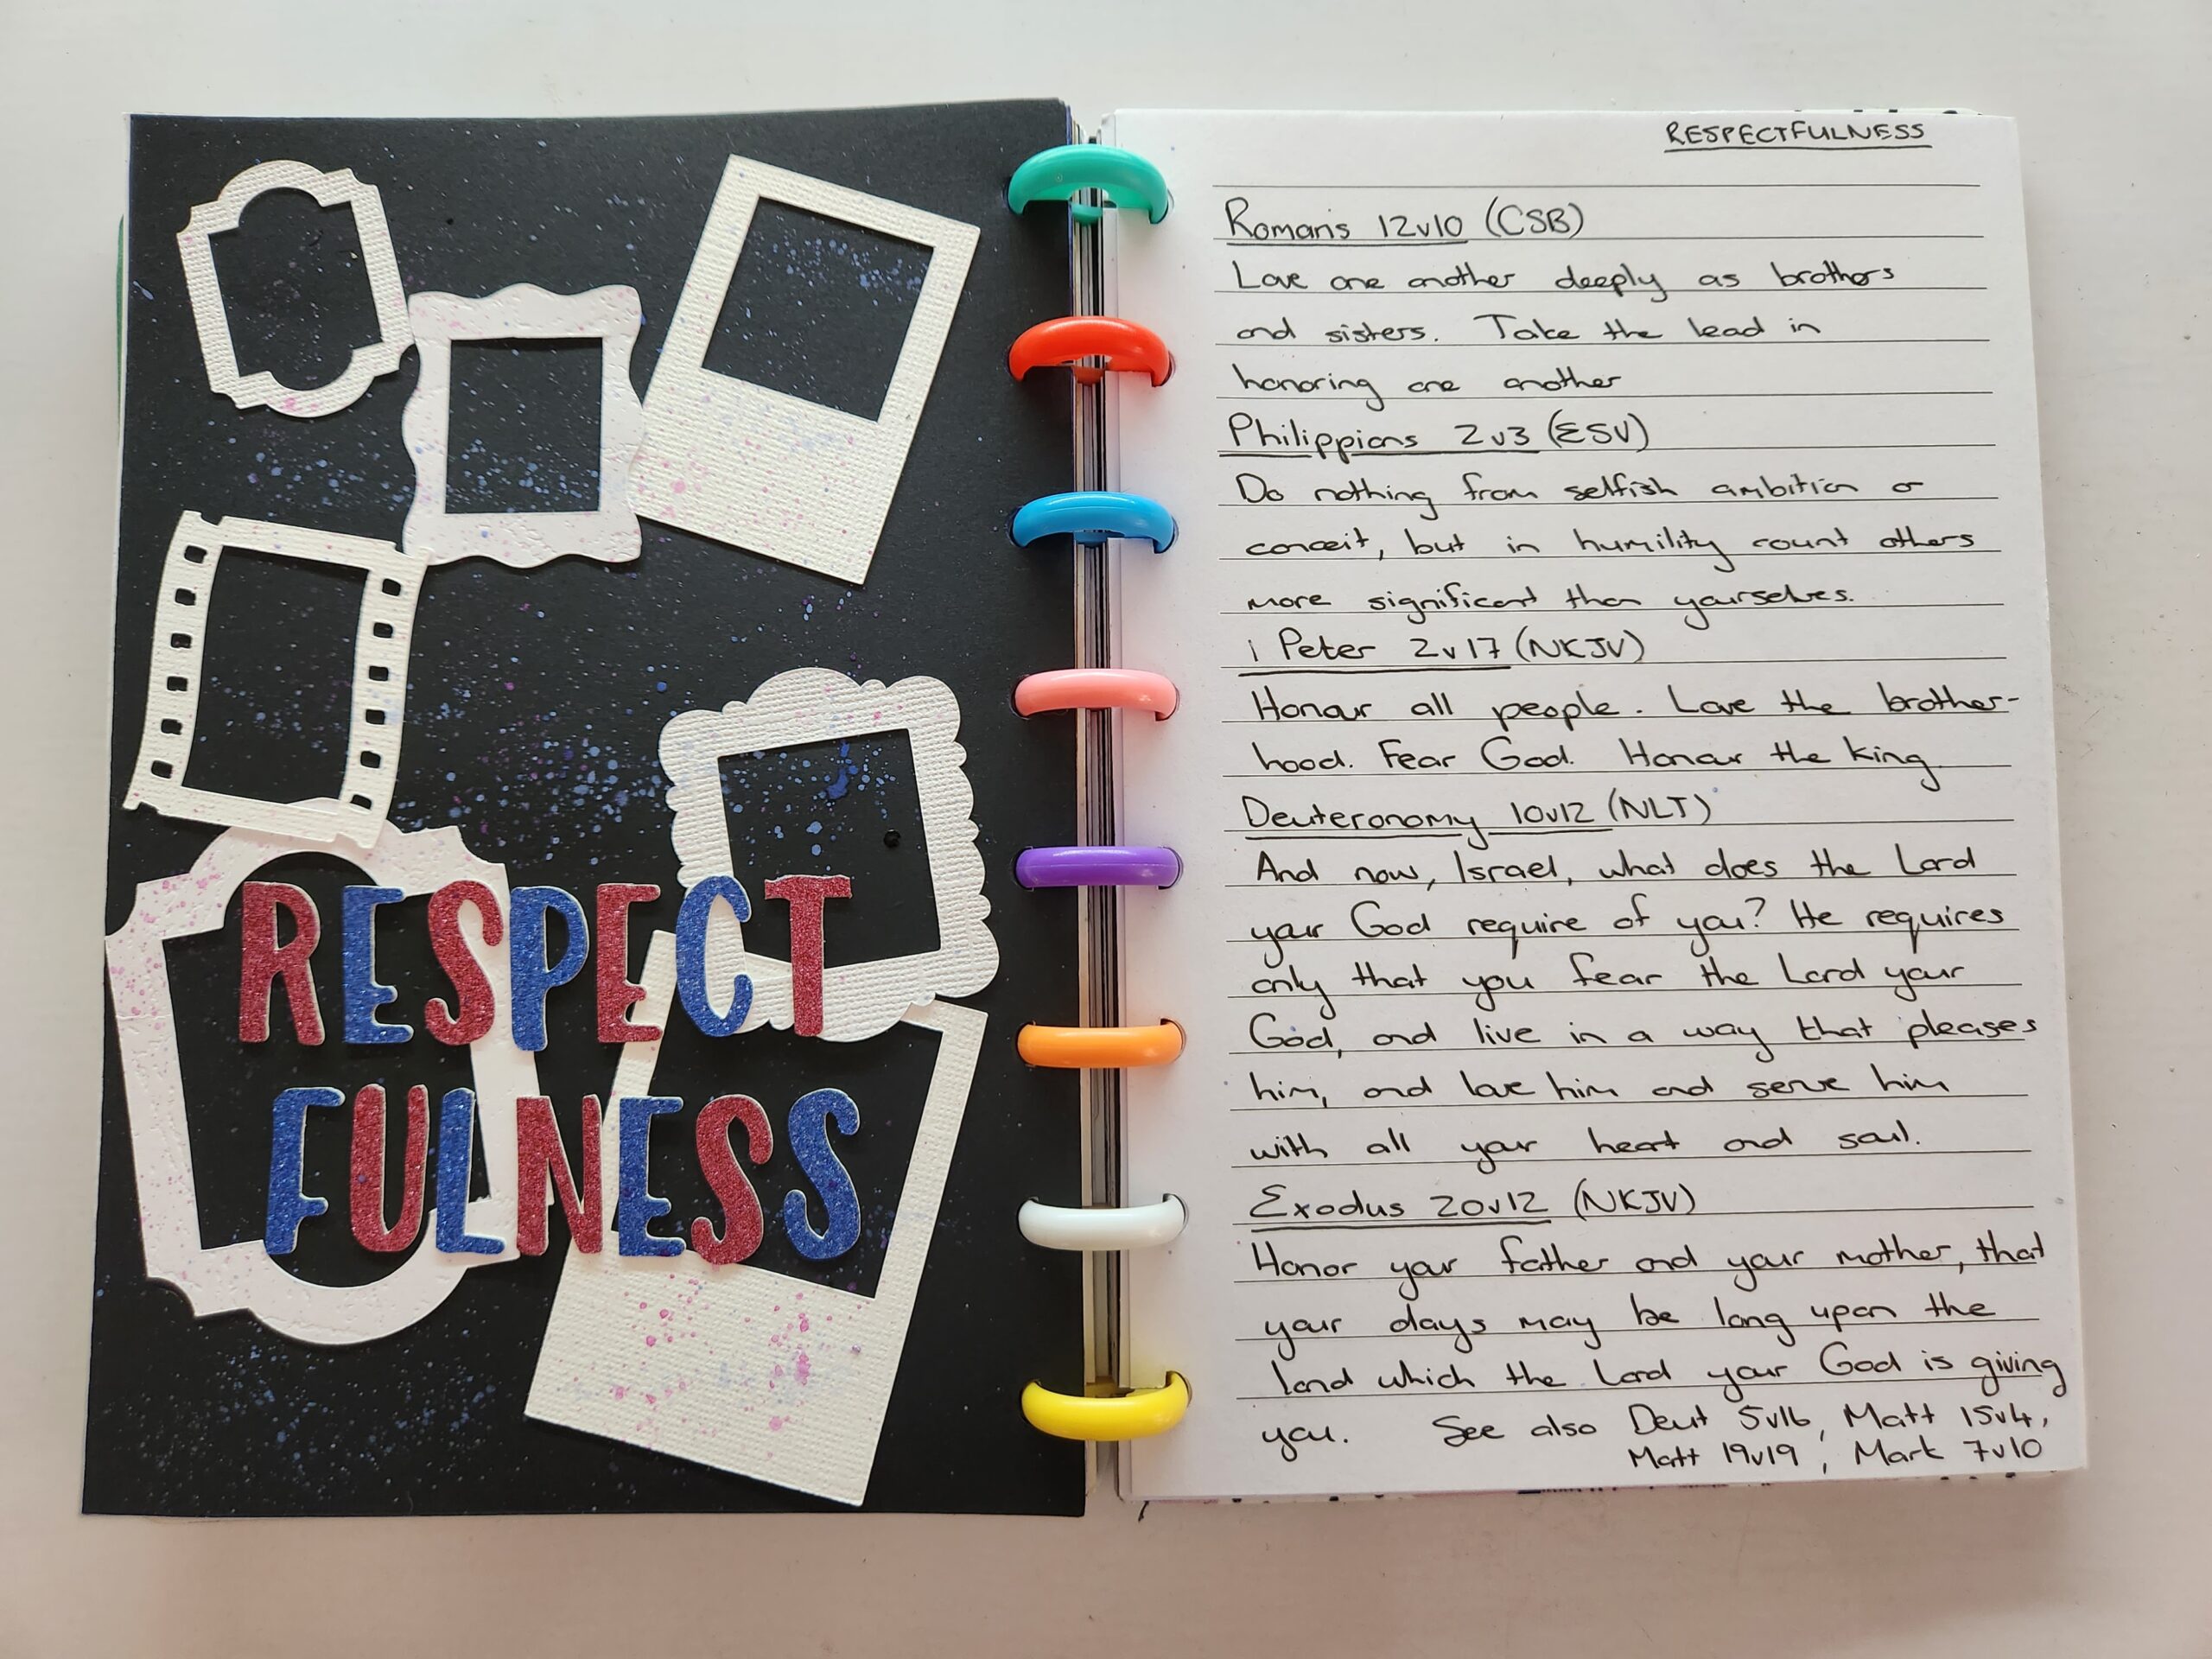 RESPECT
FULNESS
RESPECTFULNESS
Romans 12v10 (CSB)
Love one another deeply as brothers
and sisters. Take the lead in
honoring one another
Philippians 2v3 (ESV)
Do nothing from selfish ambition or
conceit, but in humility count others
more significant than yourselves.
i Peter 2v17 (NKJV)
Honour all people. Love the brother-
hood. Fear God. Honour the king.
Deuteronomy 10v12 (NLT)
And now, Israel, what does the Lord
your God require of you? He requires
only that you fear the Lord your
God, and live in a way that pleases
him, and love him and serve him
with all your heart and soul.
Exodus 20v12 (NKJV)
Honor your father and your mother, that
your days may be long upon the
land which the Lord your God is giving
you. See also Deut 5v16, Matt 15v4,
Matt 19v19, Mark 7v10